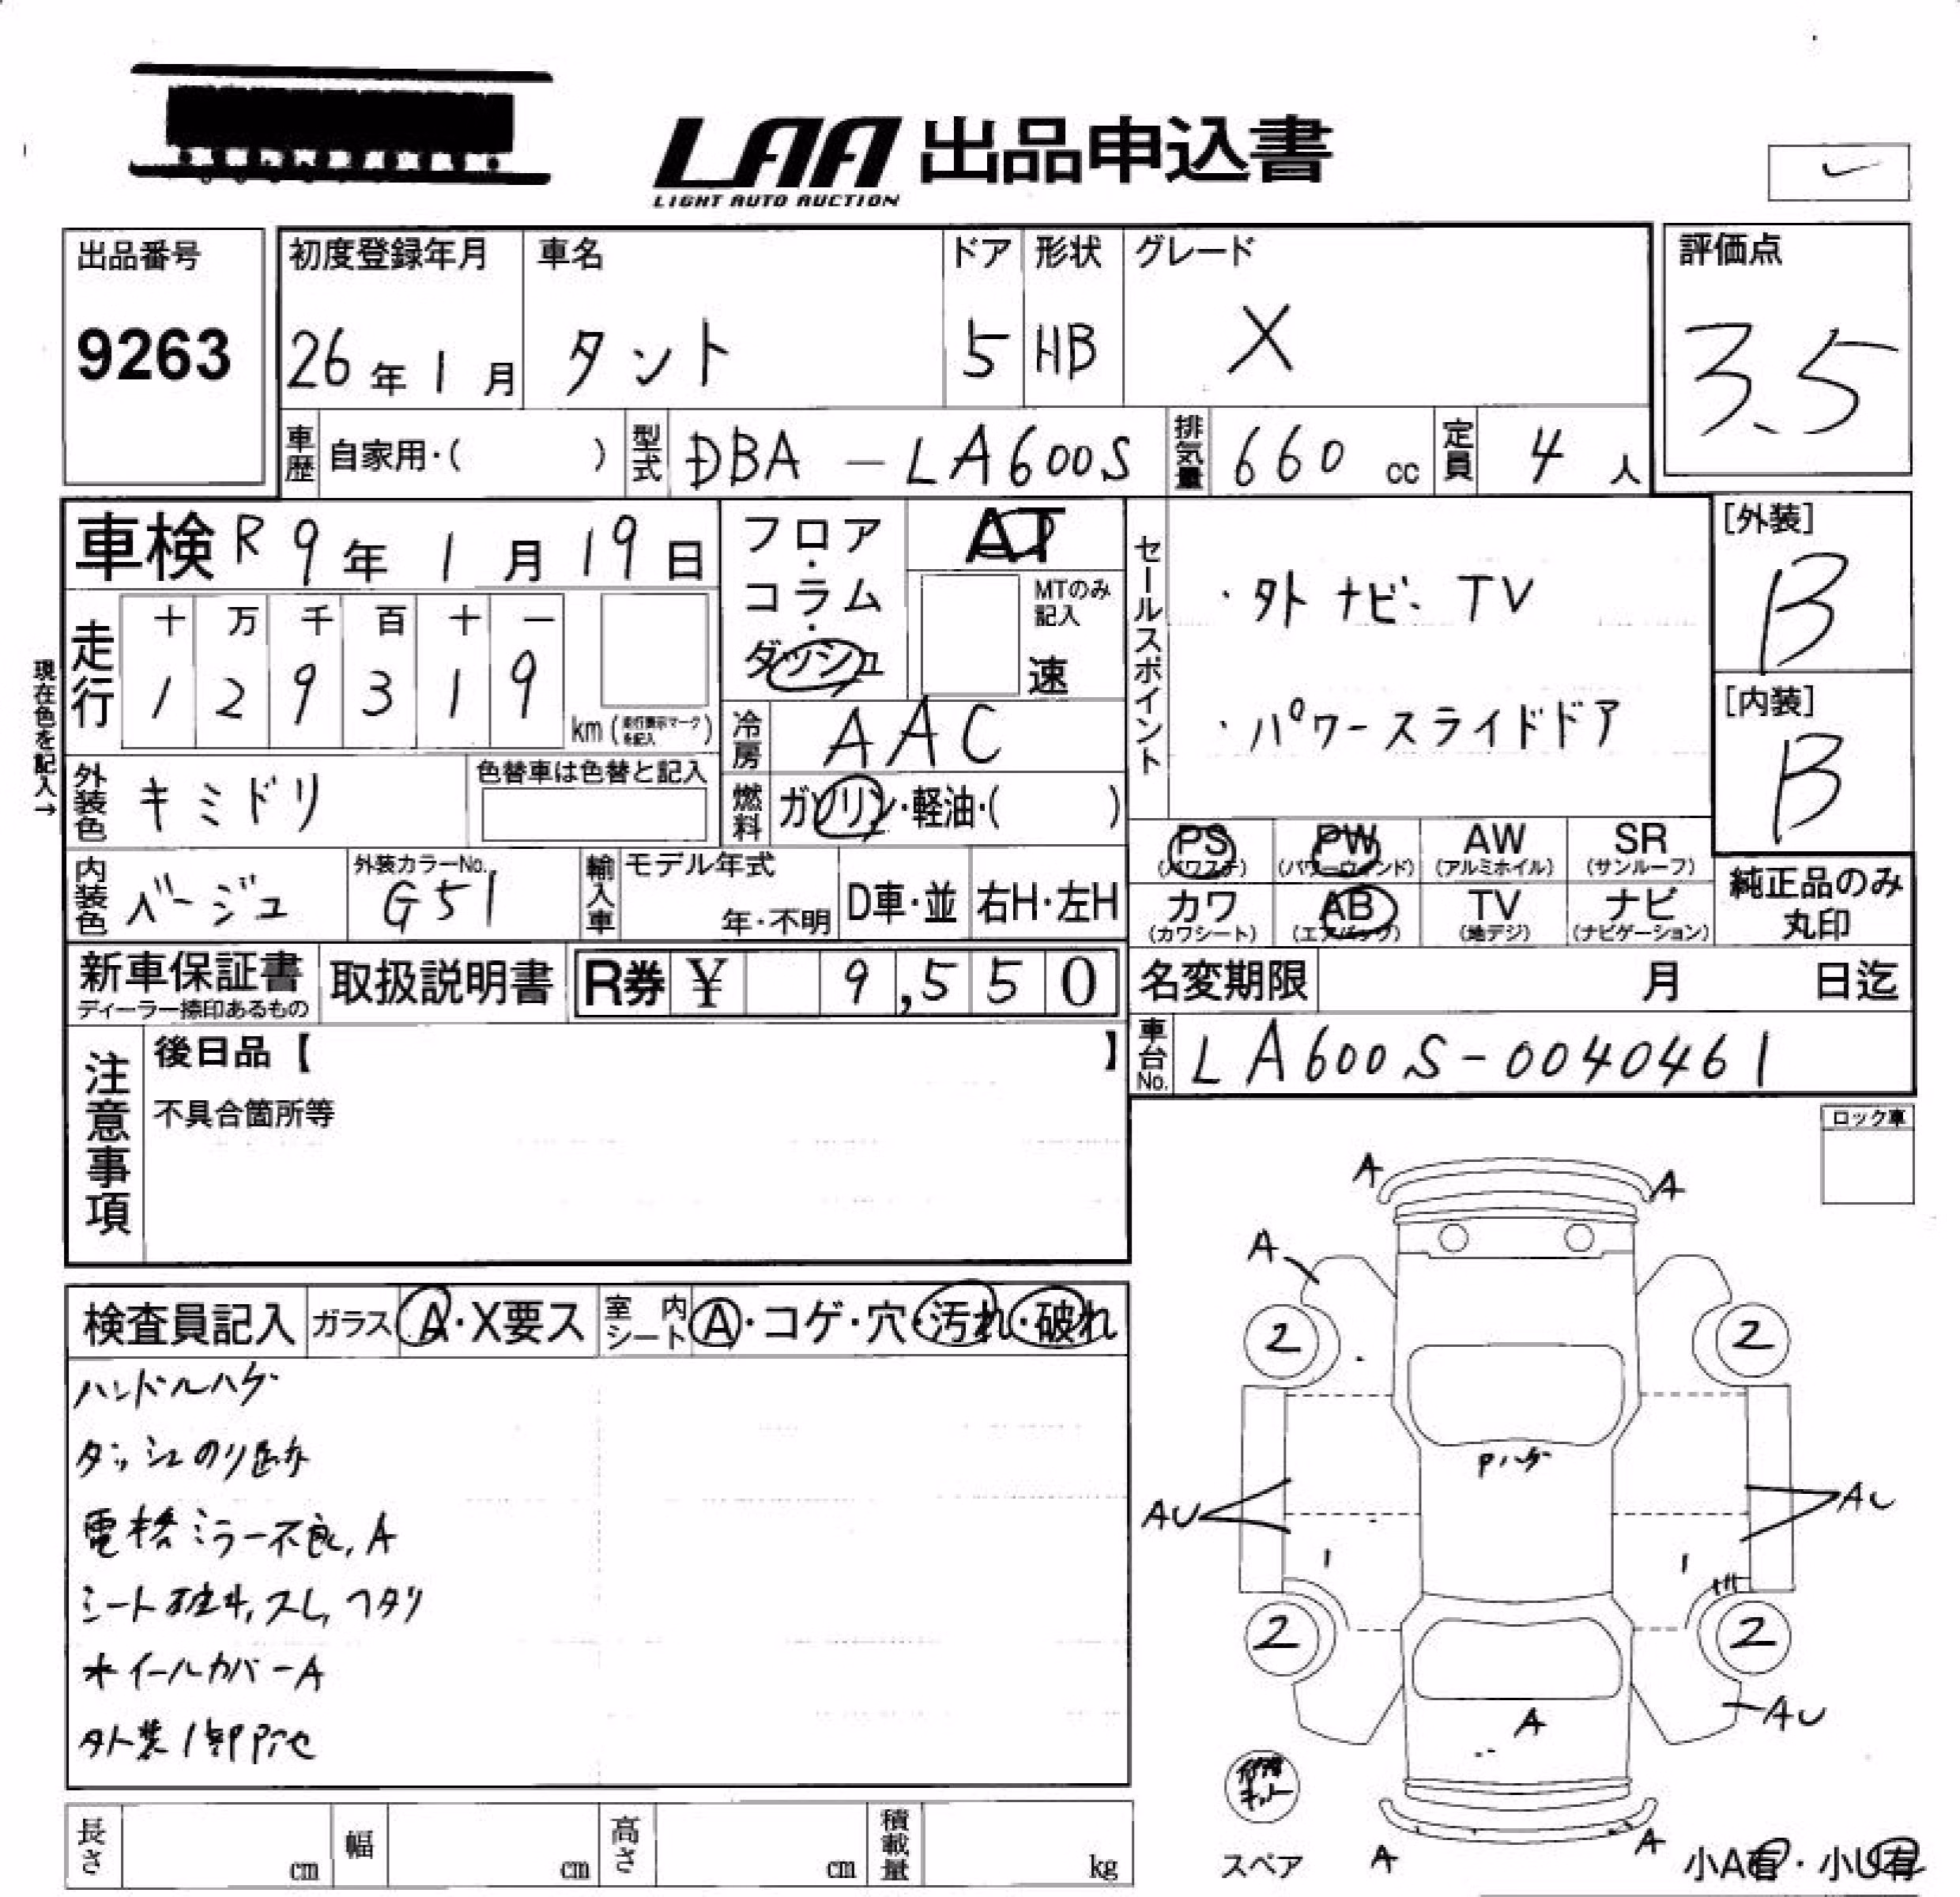 LAA 出品申込書
LIGHT AUTO AUCTION
出品番号
9263
初度登録年月
26年1月
車名
タント
ドア
5
形状
HB
グレード
X
評価点
3.5
車歴 自家用・( )
型式 DBA-LA600S
排気量 660cc
定員 4人
車検 R9年1月19日
現在色を記入→
走行
十 万 千 百 十 一
1 2 9 3 1 9
km(走行表示マークを記入)
フロア・コラム・ダッシュ
AT
MTのみ記入
速
セールスポイント
・外ナビ、TV
・パワースライドドア
[外装]
B
[内装]
B
冷房 AAC
燃料 ガソリン・軽油・( )
外装色 キミドリ
色替車は色替と記入
内装色 ベージュ
外装カラーNo.
G51
輸入車
モデル年式
年・不明
D車・並
右H・左H
PS
(パワステ)
PW
(パワーウィンド)
AW
(アルミホイル)
SR
(サンルーフ)
カワ
(カワシート)
AB
(エアバッグ)
TV
(地デジ)
ナビ
(ナビゲーション)
純正品のみ
丸印
新車保証書
ディーラー捺印あるもの
取扱説明書
R券 ¥ 9,550
名変期限 月 日迄
車台No. LA600S-0040461
注意事項
後日品【 】
不具合箇所等
ロック車
検査員記入
ガラス A・X要ス
室内シート A・コゲ・穴・汚れ・破れ
ハンドルハゲ
ダッシュのり跡
電格ミラー不良,A
シート
スレ,ヘタリ
ホイールカバーA
外装1部
A
A
A
2
2
Pハゲ
AU
AU
1
1
2
2
A
AU
修理キット
スペア
A
A
小A有・小U有
長さ cm
幅 cm
高さ cm
積載量 kg